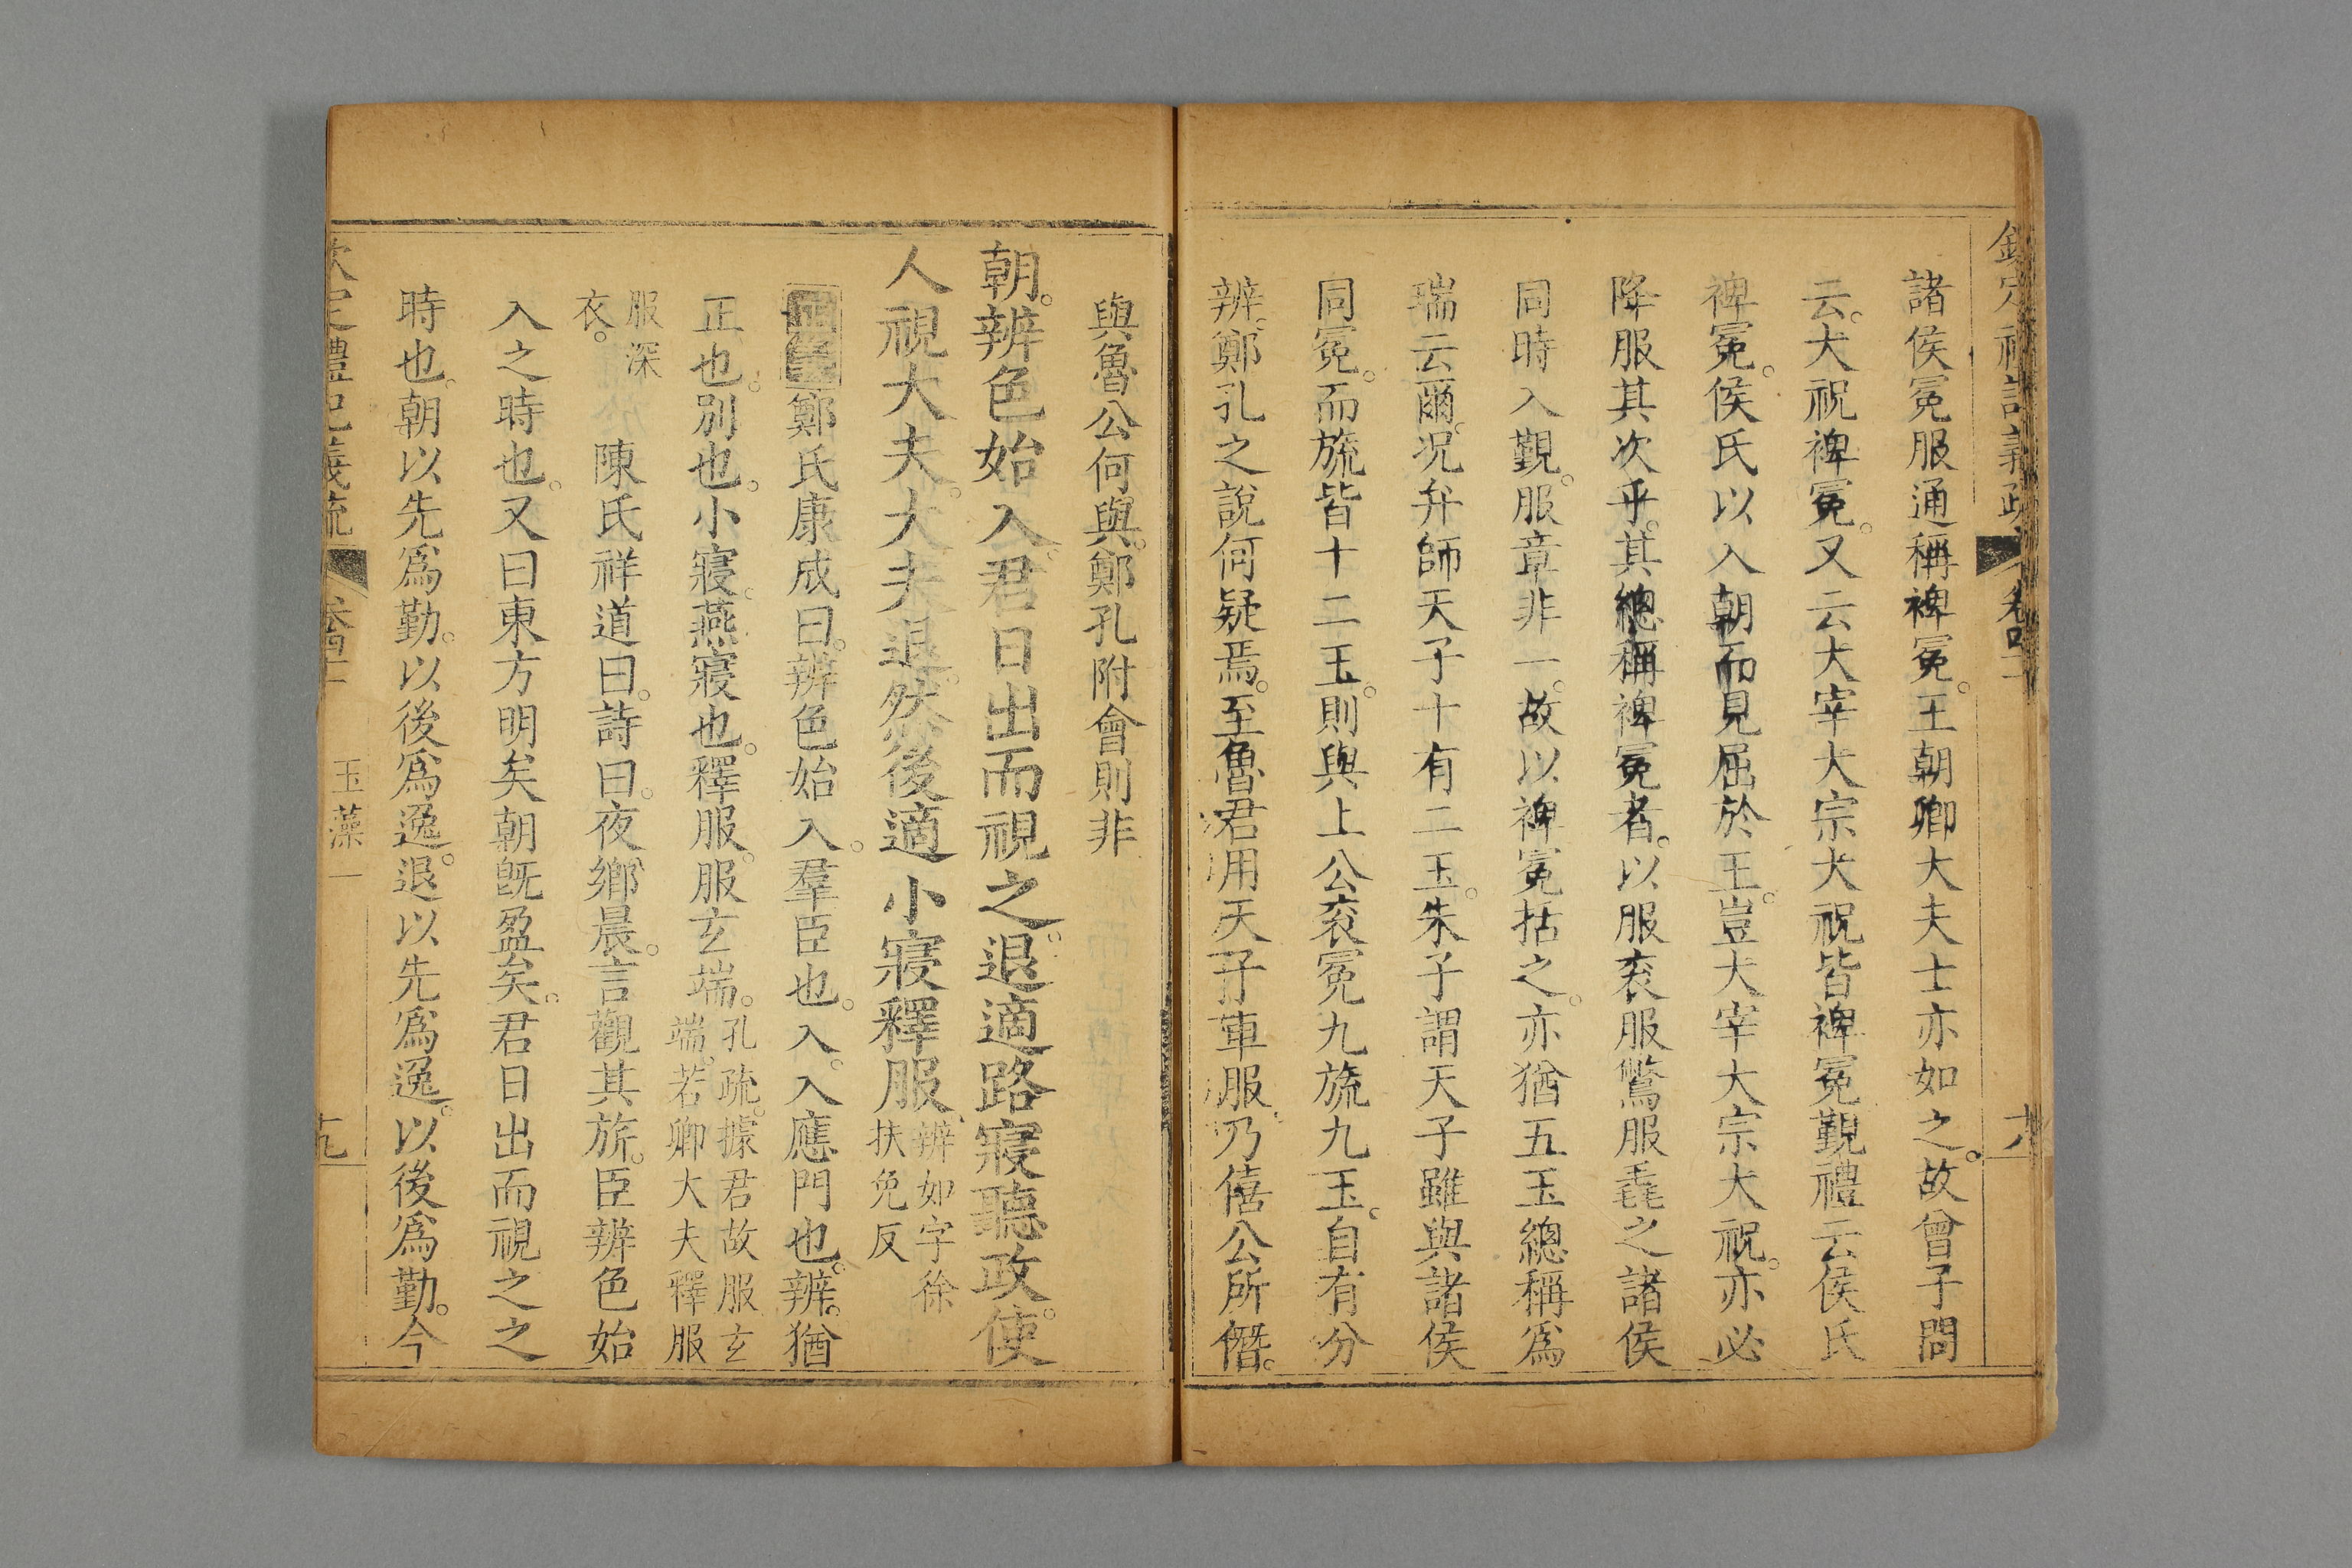 欽定禮記義疏 卷四十 十八
諸侯冕服通稱裨冕。王朝卿大夫士亦如之。故曾子問
云。大祝裨冕。又云大宰大宗大祝皆裨冕覲禮云侯氏
裨冕。侯氏以入朝而見屈於王。豈大宰大宗大祝。亦必
降服其次乎。其總稱裨冕者。以服袞服鷩服毳之諸侯
同時入覲。服章非一。故以裨冕括之。亦猶五玉總稱爲
瑞云爾。况弁師天子十有二玉。朱子謂天子雖與諸侯
同冕。而旒皆十二玉。則與上公袞冕九旒九玉。自有分
辨。鄭孔之說何疑焉。至魯君用天子車服。乃僖公所僭。
與魯公何與。鄭孔附會則非
朝。辨色始入。君日出而視之。退適路寢聽政。使
人視大夫。大夫退。然後適小寢釋服、辨如字徐
扶免反
正義鄭氏康成曰。辨色始入。羣臣也。入。入應門也。辨。猶
正也。別也。小寢。燕寢也。釋服。服玄端。孔疏。據君故服玄
端。若卿大夫釋服
服深
衣。陳氏祥道曰。詩曰。夜鄉晨。言觀其旂。臣辨色始
入之時也。又曰東方明矣朝旣盈矣。君日出而視之之
時也。朝以先爲勤。以後爲逸。退以先爲逸。以後爲勤。今
欽定禮記義疏 卷四十 玉藻一 十九